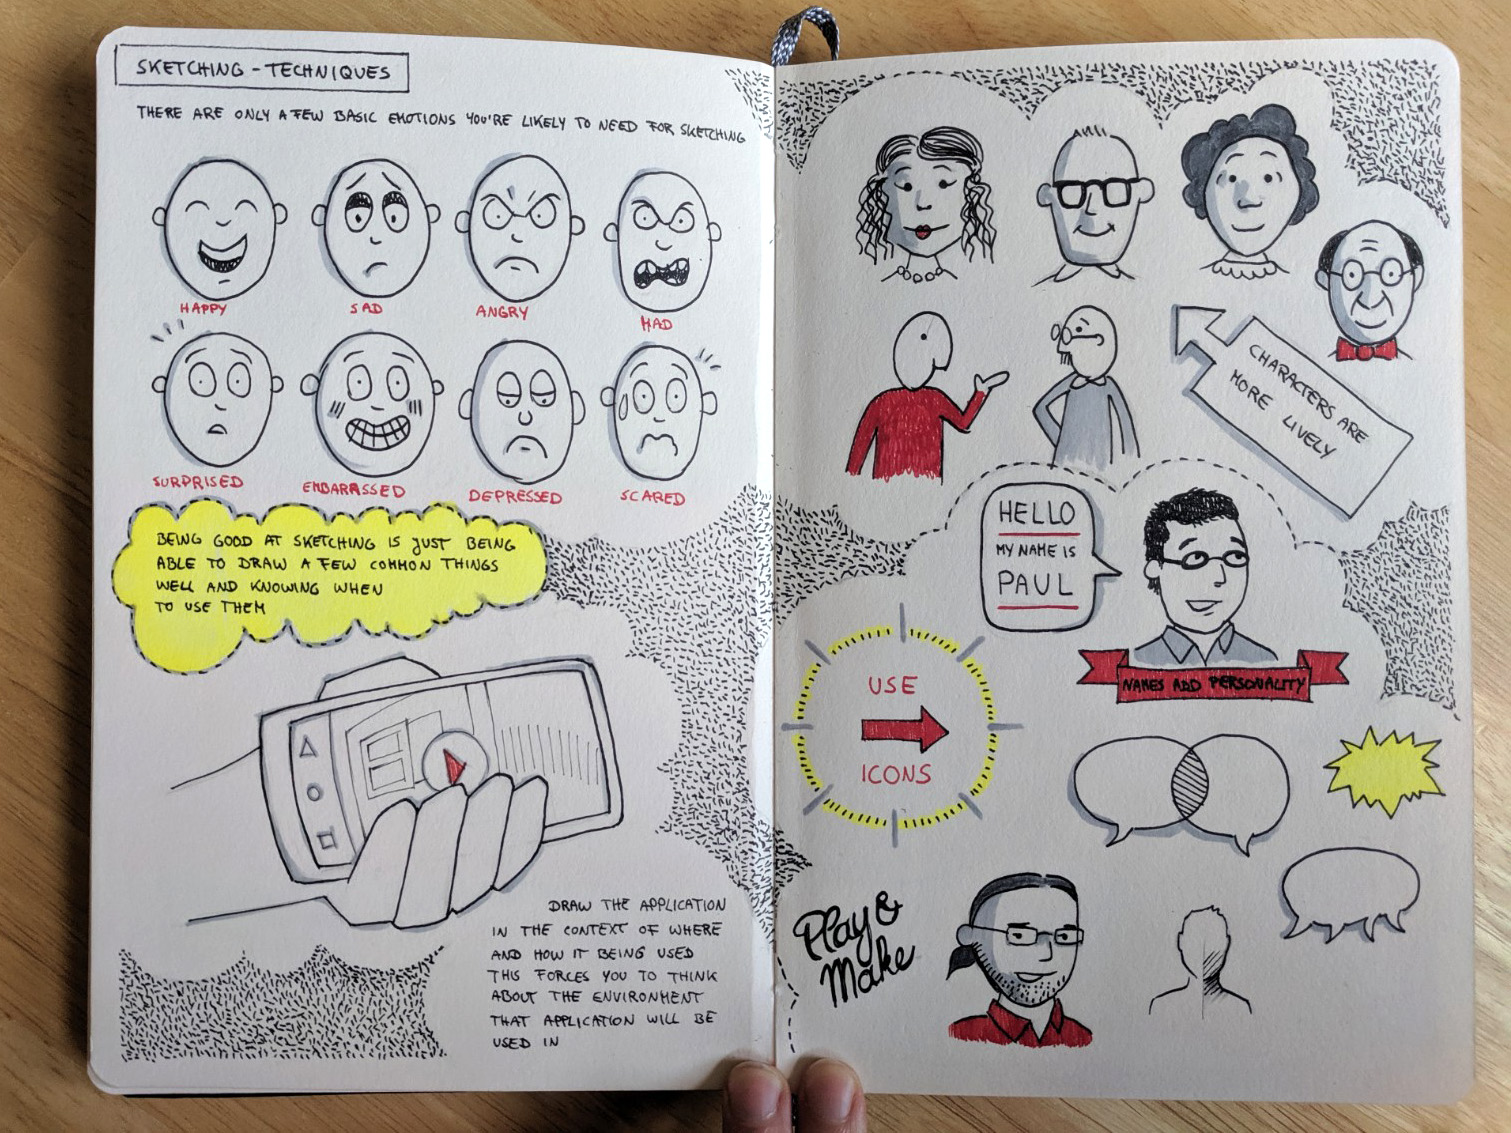 SKETCHING - TECHNIQUES
THERE ARE ONLY A FEW BASIC EMOTIONS YOU'RE LIKELY TO NEED FOR SKETCHING
HAPPY
SAD
ANGRY
MAD
SURPRISED
EMBARASSED
DEPRESSED
SCARED
BEING GOOD AT SKETCHING IS JUST BEING
ABLE TO DRAW A FEW COMMON THINGS
WELL AND KNOWING WHEN
TO USE THEM
DRAW THE APPLICATION
IN THE CONTEXT OF WHERE
AND HOW IT BEING USED
THIS FORCES YOU TO THINK
ABOUT THE ENVIRONMENT
THAT APPLICATION WILL BE
USED IN
CHARACTERS ARE
MORE LIVELY
HELLO
MY NAME IS
PAUL
NAMES ADD PERSONALITY
USE
ICONS
Play &
Make